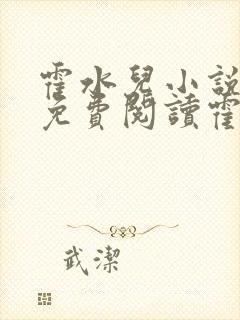 霍水兒小說
免費閱讀霍
武潔